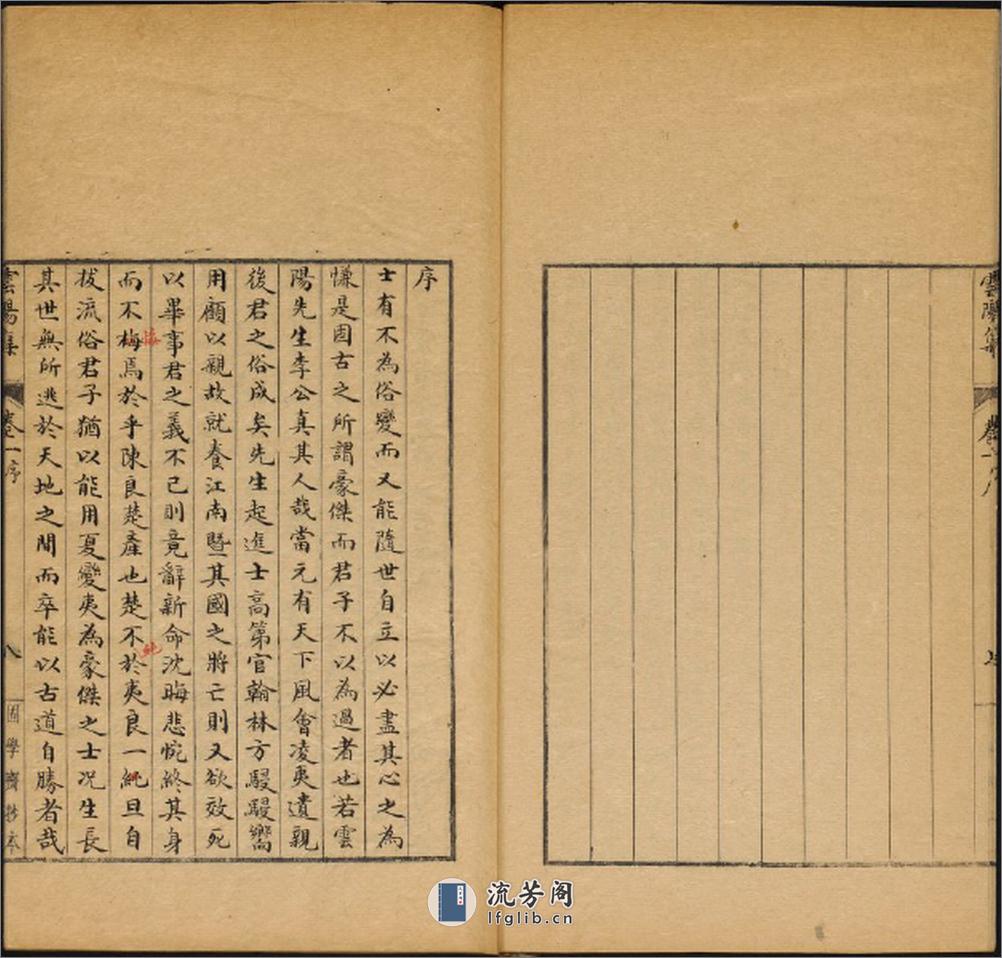 雲陽集
序
士有不為俗變而又能隨世自立以必盡其心之為
慊是固古之所謂豪傑而君子不以為過者也若雲
陽先生李公真其人哉當元有天下風會凌夷遺親
後君之俗成矣先生起進士高第官翰林方駸駸嚮
用顧以親故就養江南暨其國之將亡則又欲效死
以畢事君之義不已則竟辭新命沈晦悲惋終其身
而不梅焉於乎陳良楚產也楚不於夷良一純旦自
悔
純
拔流俗君子猶以能用夏變夷為豪傑之士况生長
其世無所逃於天地之間而卒能以古道自勝者哉
雲陽集
卷一序
八
學齋抄本
流芳阁
lfglib.cn